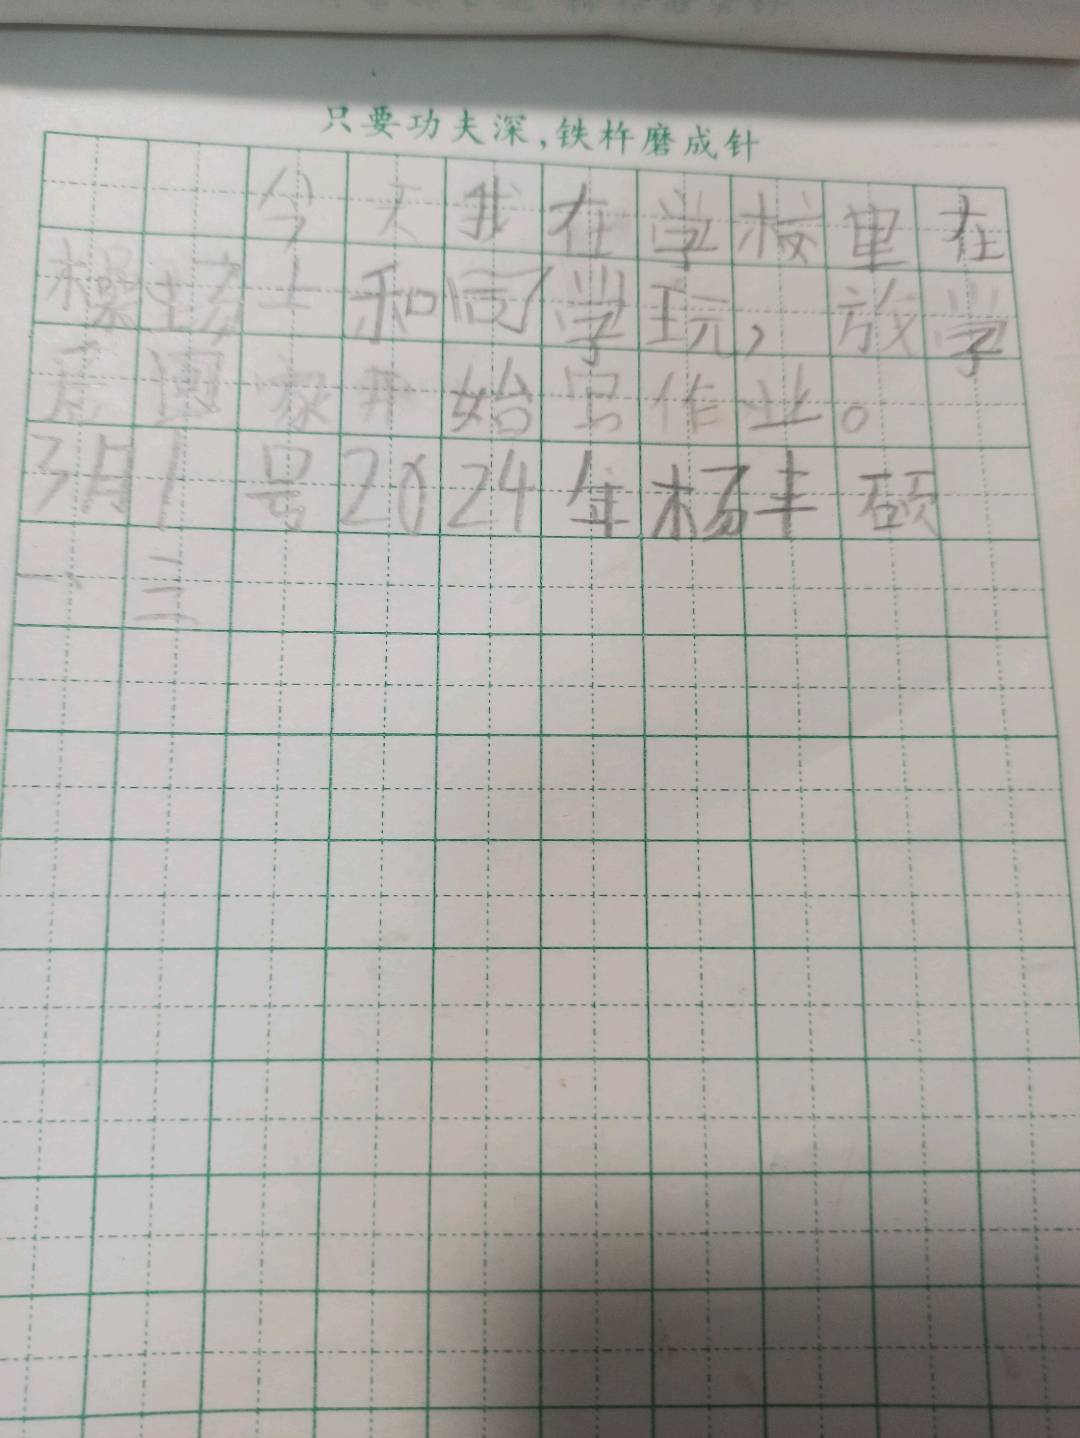 只要功夫深,铁杵磨成针
今天我在学校里在
操场上和同学玩，放学
后回家开始写作业。
3月1号2024年杨丰硕
一、三